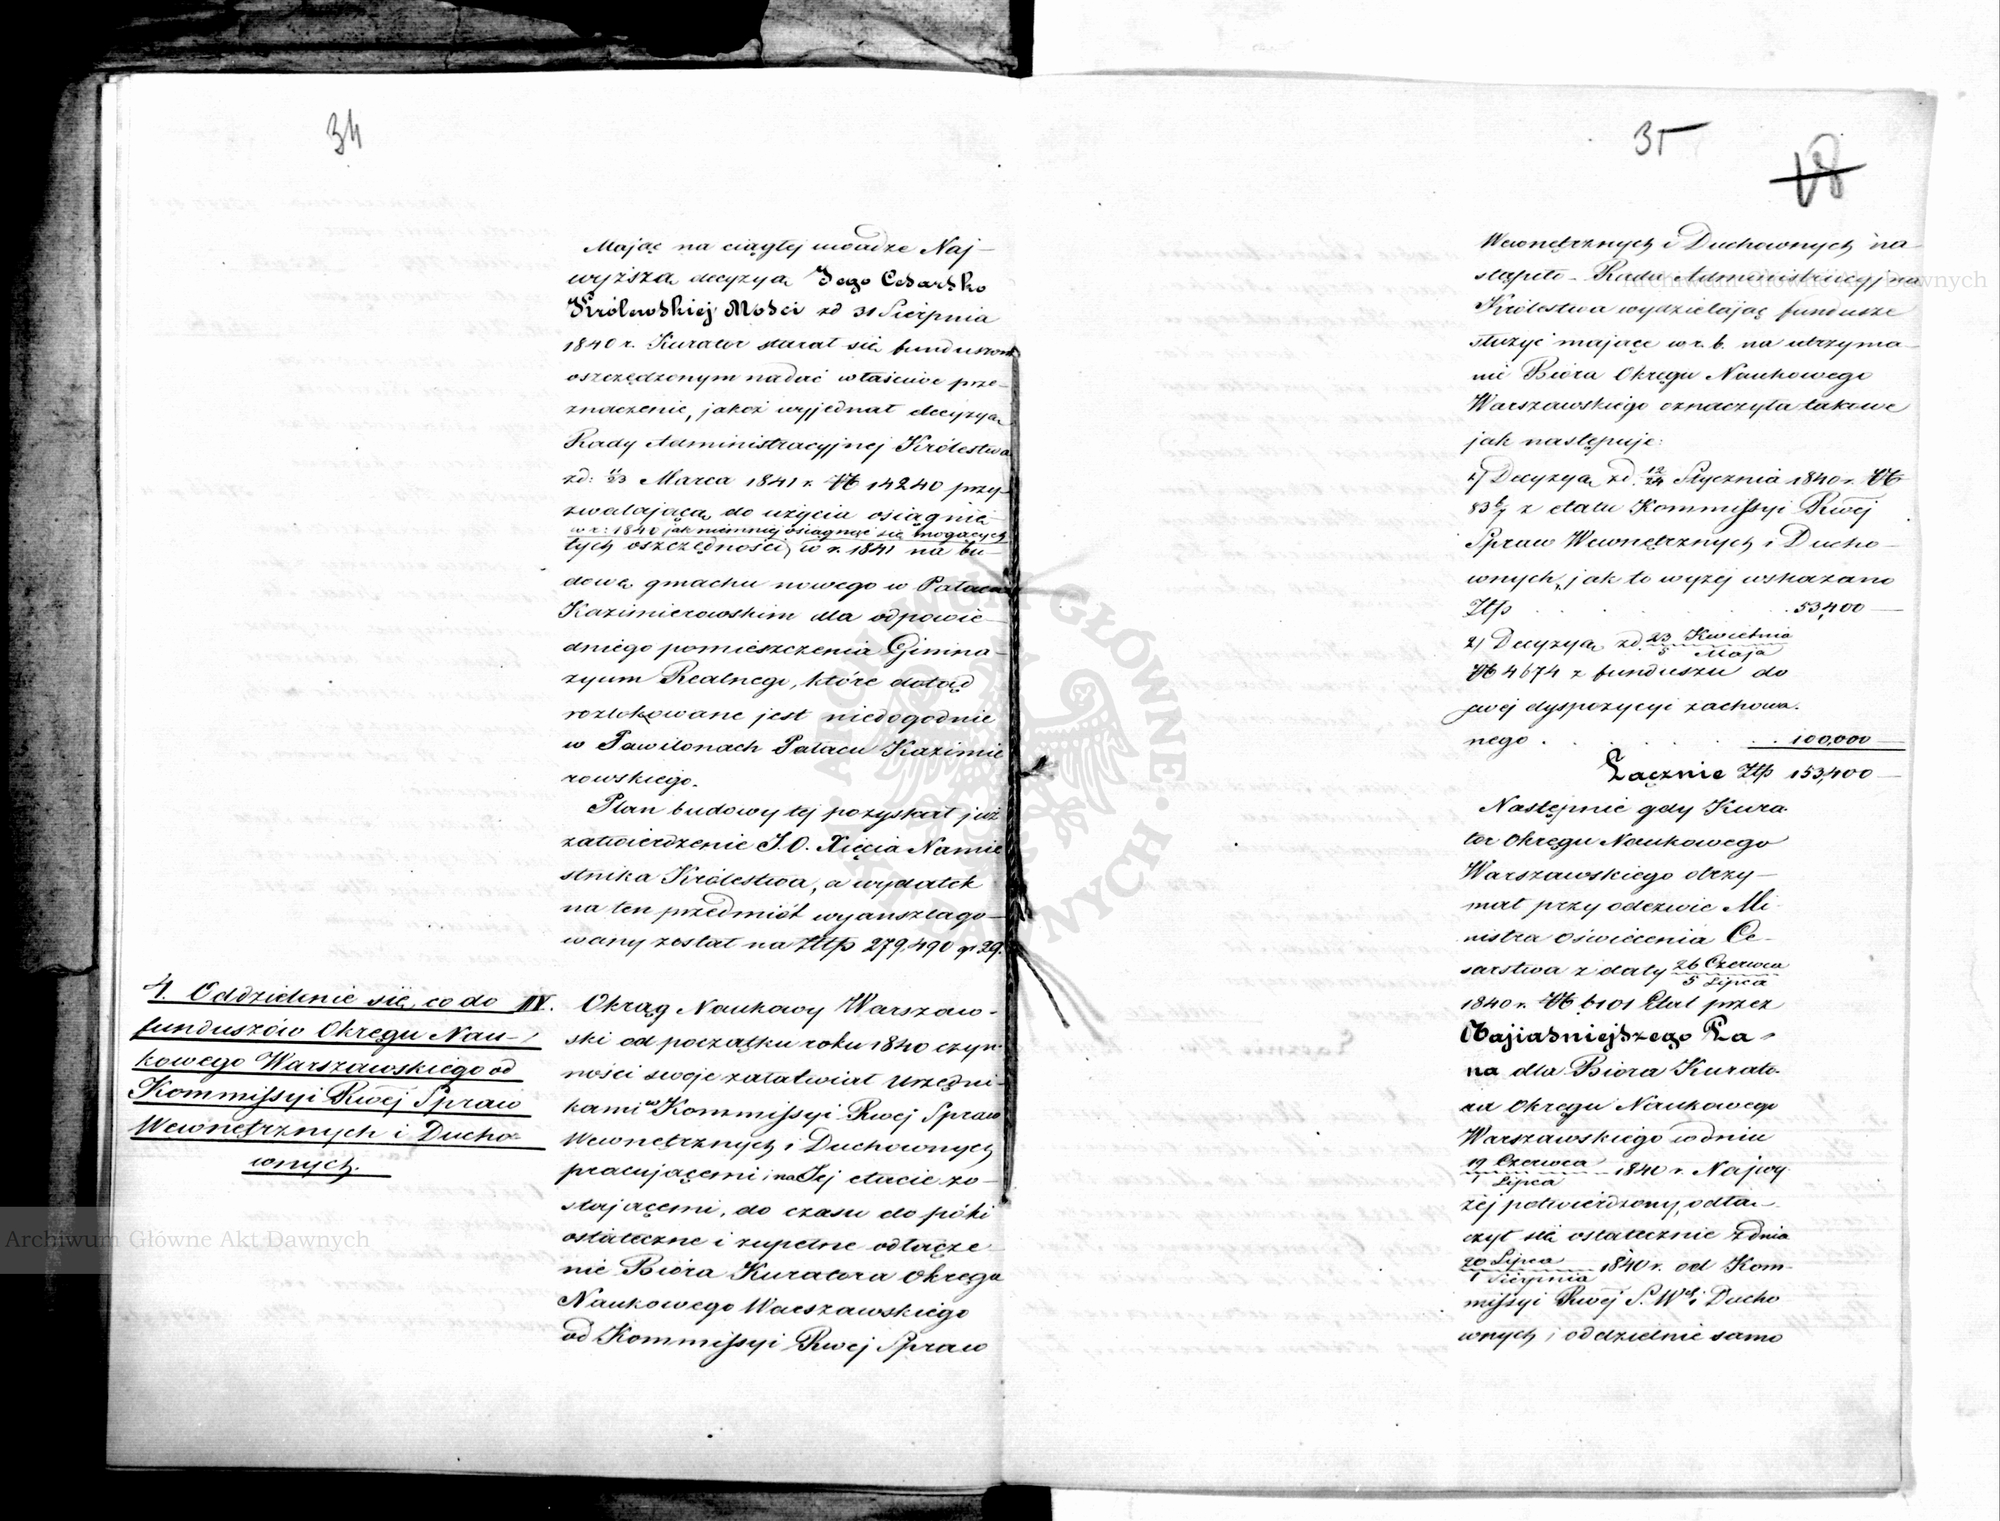 34
Mając na ciągłej uwadze Naj-
wyższą decyzyą Jego Cesarsko
Królewskiej Mości zd 31 Sierpnia
1840 r. Kurator starał się funduszom
oszczędzonym nadać właściwe prze-
znaczenie, jakoż wyjednał decyzyą
Rady Administracyjnej Królestwa
zd: 11/23 Marca 1841 r. № 14240 przy-
zwalającą do użycia osiągnię-
w r: 1840 jak niemniej osiągnąć się mogących
tych oszczędności w r. 1841 na bu-
dowę gmachu nowego w Pałacu
Kazimierowskim dla odpowie-
dniego pomieszczenia Gimna-
zyum Realnego, które dotąd
rozlokowane jest niedogodnie
w Pawilonach Pałacu Kazimie
rowskiego.
Plan budowy tej pozyskał już
zatwierdzenie J.O. Xięcia Namie
stnika Królestwa, a wydatek
na ten przedmiot wyanszlago-
wany został na Złp 279,490 gr 29.
4. Oddzielenie się co do
funduszów Okręgu Nau-
kowego Warszawskiego od
Kommissyi Rwéj Spraw
Wewnętrznych i Ducho-
wnych.
IV. Okrąg Naukowy Warszaw-
ski od początku roku 1840 czyn-
ności swoje załatwiał Urzędni-
kami w Kommissyi Rwej Spraw
Wewnętrznych i Duchownych
pracującemi, i na Jej etacie zo-
stającemi, do czasu do póki
ostateczne i zupełne odłącze-
nie Bióra Kuratora Okręgu
Naukowego Warszawskiego
od Kommissyi Rwej Spraw
35
18
Wewnętrznych i Duchownych na
stąpiło. Rada Administracyjna
Królestwa wydzielając fundusze
służyć mające w r. b. na utrzyma-
nie Bióra Okręgu Naukowego
Warszawskiego oznaczyła takowe
jak następuje:
1) Decyzyą zd. 12/24 Stycznia 1840 r. №
83 6/7 z etatu Kommissyi Rwéj
Spraw Wewnętrznych i Ducho-
wnych, jak to wyżej wskazano
Złp . . . . 53,400 —
2) Decyzyą zd. 23 Kwietnia / 5 Maja
№ 4674 z funduszu do
swej dyspozycyi zachowa-
nego . . . . . 100,000 —
Łącznie Złp 153,400 —
Następnie gdy Kura-
tor Okręgu Naukowego
Warszawskiego otrzy-
mał przy odezwie Mi-
nistra Oświecenia Ce-
sarstwa z daty 26 Czerwca / 5 Lipca
1840 r. № 6101 Etat przez
Najjaśniejszego Pa-
na dla Bióra Kurato-
ra Okręgu Naukowego
Warszawskiego w dniu
19 Czerwca / 1 Lipca 1840 r. Najwy-
żej potwierdzony, odłą-
czył się ostatecznie z dnia
20 Lipca / 1 Sierpnia 1840 r. od Kom-
missyi Rwéj S. W. i Ducho
wnych, i oddzielnie samo
Archiwum Główne Akt Dawnych
Archiwum Główne Akt Dawnych
ARCHIWUM GŁÓWNE AKT DAWNYCH